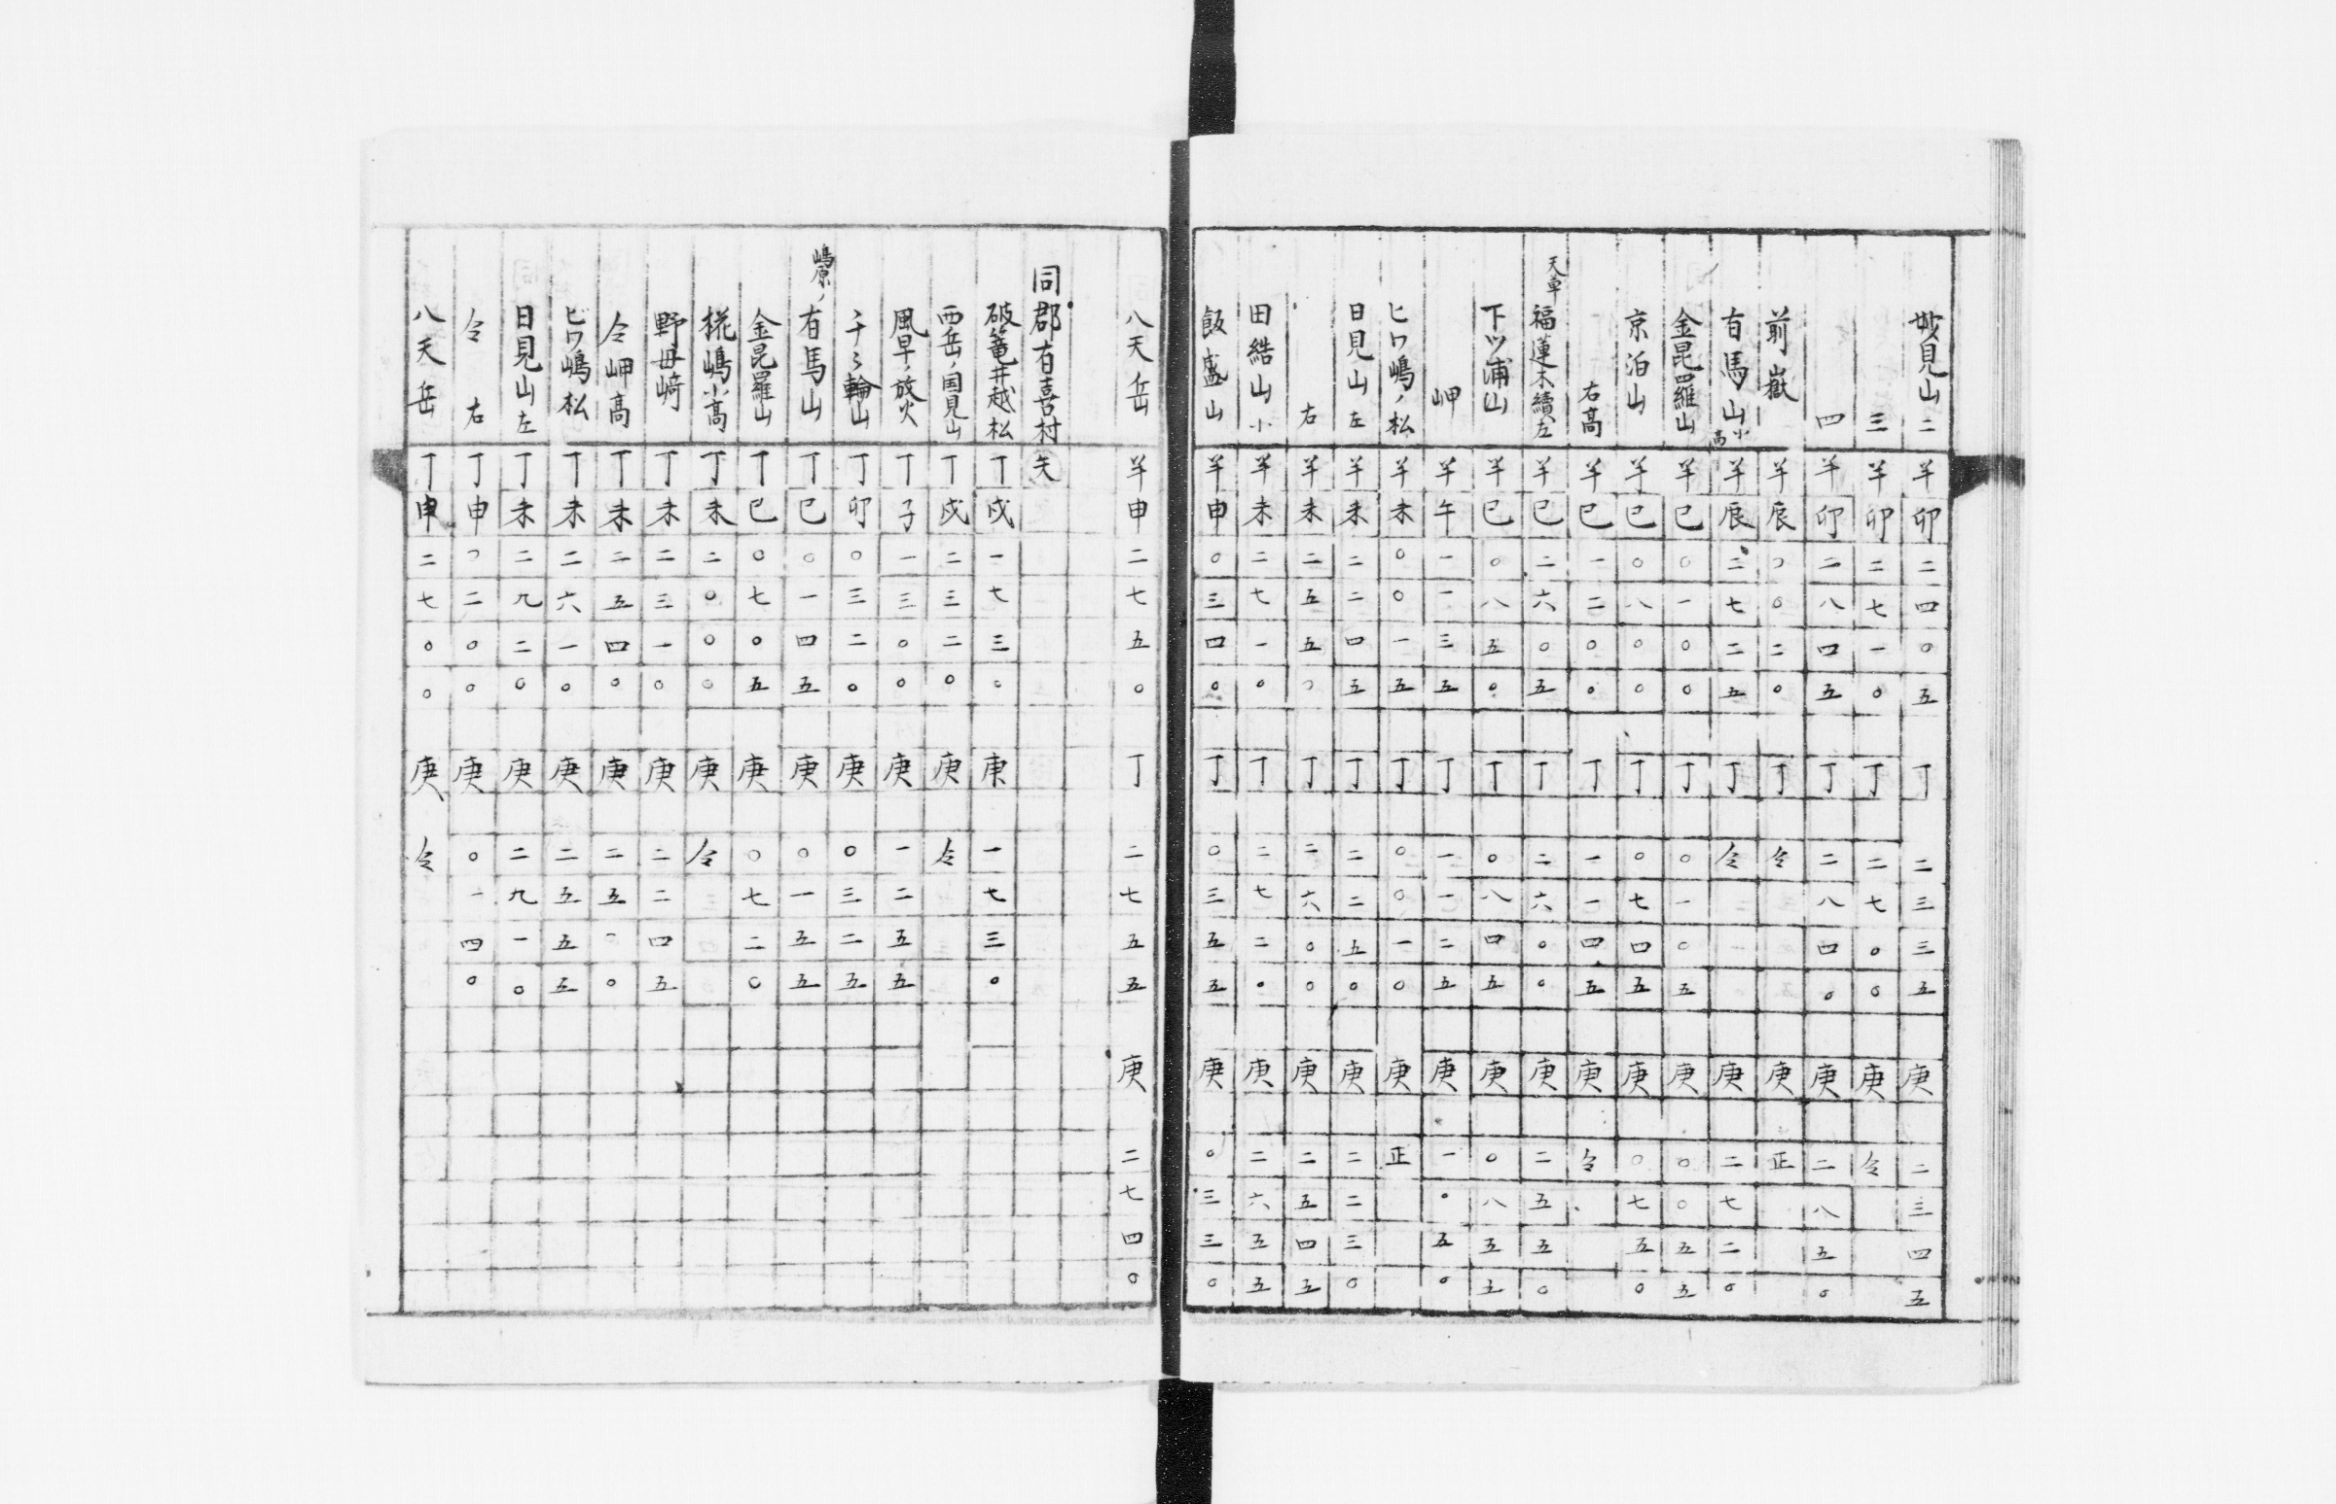 妙見山二 羊卯二四〇五 丁 二三三五 庚 二三四五
三 羊卯二七一〇 丁 二七〇〇 庚 仝
四 羊卯二八四五 丁 二八四〇 庚 二八五〇
前嶽 羊辰〇〇二〇 丁 仝 庚 正
有馬山小高 羊辰二七二五 丁 仝 庚 二七二〇
金昆羅山 羊巳〇一〇〇 丁 〇一〇五 庚 〇〇五五
京泊山 羊巳〇八〇〇 丁 〇七四五 庚 〇七五〇
右高 羊巳一二〇〇 丁 一一四五 庚 仝
天草福連木續左 羊巳二六〇五 丁 二六〇〇 庚 二五五〇
下ツ浦山 羊巳〇八五〇 丁 〇八四五 庚 〇八五五
岬 羊午一一三五 丁 一一二五 庚 一〇五〇
ヒワ嶋ノ松 羊未〇〇一五 丁 〇〇一〇 庚 正
日見山左 羊未二二四五 丁 二二五〇 庚 二二三〇
右 羊未二五五〇 丁 二六〇〇 庚 二五四五
田結山小 羊未二七一〇 丁 二七二〇 庚 二六五五
飯盛山 羊申〇三四〇 丁 〇三五五 庚 〇三三〇
八天岳 羊申二七五〇 丁 二七五五 庚 二七四〇
同郡有喜村矢
破篭井越松 丁戌一七三〇 庚 一七三〇
西岳ノ国見山 丁戌二三二〇 庚 仝
風早ノ放火 丁子一三〇〇 庚 一二五五
千々輪山 丁卯〇三二〇 庚 〇三二五
嶋原ノ有馬山 丁巳〇一四五 庚 〇一五五
金昆羅山 丁巳〇七〇五 庚 〇七二〇
椛嶋小高 丁未二〇〇〇 庚 仝
野母﨑 丁未二三一〇 庚 二二四五
仝岬高 丁未二五四〇 庚 二五〇〇
ヒワ嶋松 丁未二六一〇 庚 二五五五
日見山左 丁未二九二〇 庚 二九一〇
仝右 丁申〇二〇〇 庚 〇一四〇
八天岳 丁申二七〇〇 庚 仝